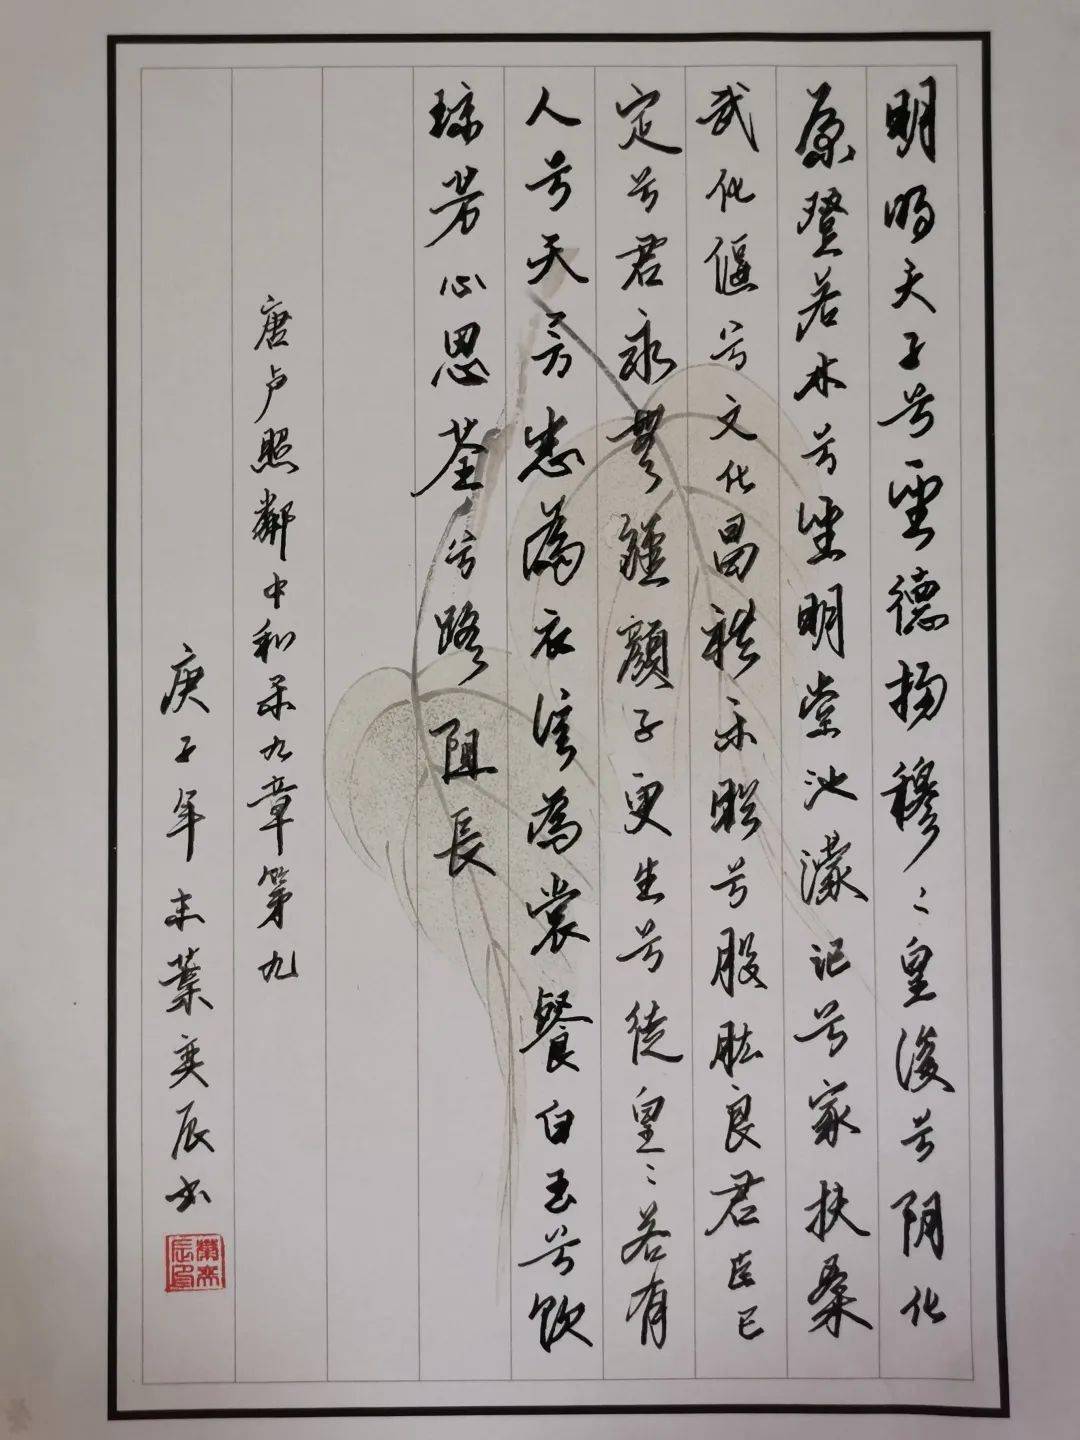 明明天子兮聖德揚穆〻皇後兮阴化
康登若木兮坐明堂池濛记兮家扶桑
武化偃兮文化昌禮乐昭兮股肱良君臣已
定兮君永無疆顏子更生兮徒皇〻若有
人兮天一方忠為衣信為裳餐白玉兮飲
琼芳心思荃兮路阻長
唐卢照鄰中和乐九章第九
庚子年末葉奕辰书
葉奕辰印